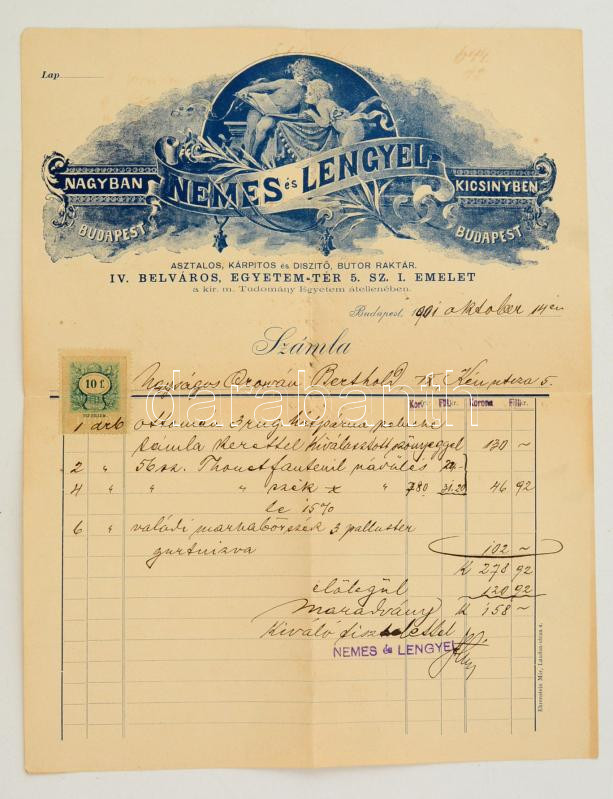 Lap
NAGYBAN
NEMES és LENGYEL
KICSINYBEN
BUDAPEST
BUDAPEST
ASZTALOS, KÁRPITOS és DISZITŐ, BUTOR RAKTÁR.
IV. BELVÁROS, EGYETEM-TÉR 5. SZ. I. EMELET
a kir. m. Tudomány Egyetem átellenében.
Budapest, 1901 október 14én
Számla
Nagyságos Berthold, IX. 5.
10 f.
Korona Fillér Korona Fillér
1 drb ottomán 3
kerettel kiválasztott szőnyeggel 130 ~
2 " 56 sz. Thonet fauteuil
4 " " " szék " 7 80 31.20 46 92
le 15%
6 " valódi marhabőrszék 3
102 ~
K 278 92
előlegül 120 92
maradvány K 158 ~
Kiváló tisztelettel
NEMES és LENGYEL
Ehrenstein Mór, Laudon utcza 4.
darabanth.com